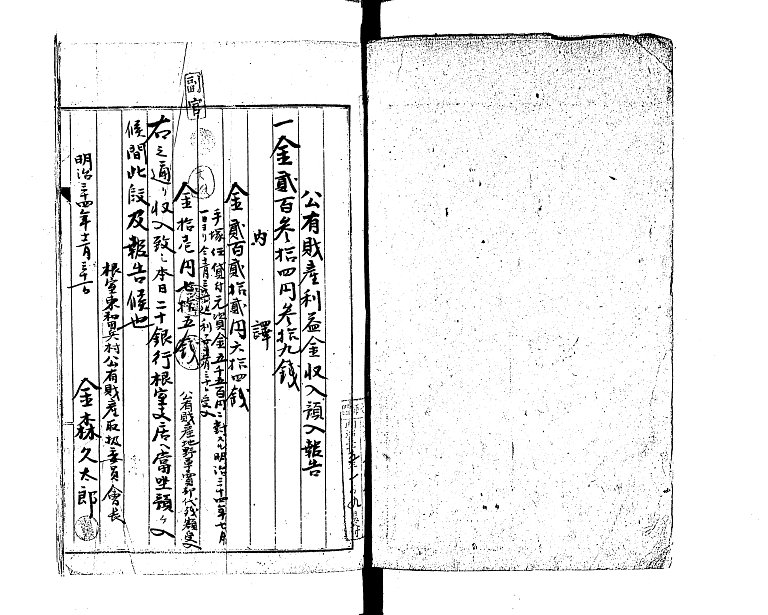 公有財産利益金収入預入報告
一金貳百参拾四円参拾九銭
内譯
金貳百貳拾貳円六拾四銭
手塚 貸付元資金五千五百円ニ對スル明治三十四年七月
一日ヨリ 十二月 利 受入
金拾壱円七拾五銭
公有財産地野草賣却代 受入
右之通り収入致シ本日二十銀行根室支店ヘ當座預ケ入
候間此段及報告候也
明治三十四年十二月三十 日
根室東和田兵村公有財産取扱委員會長
金森久太郎
副官